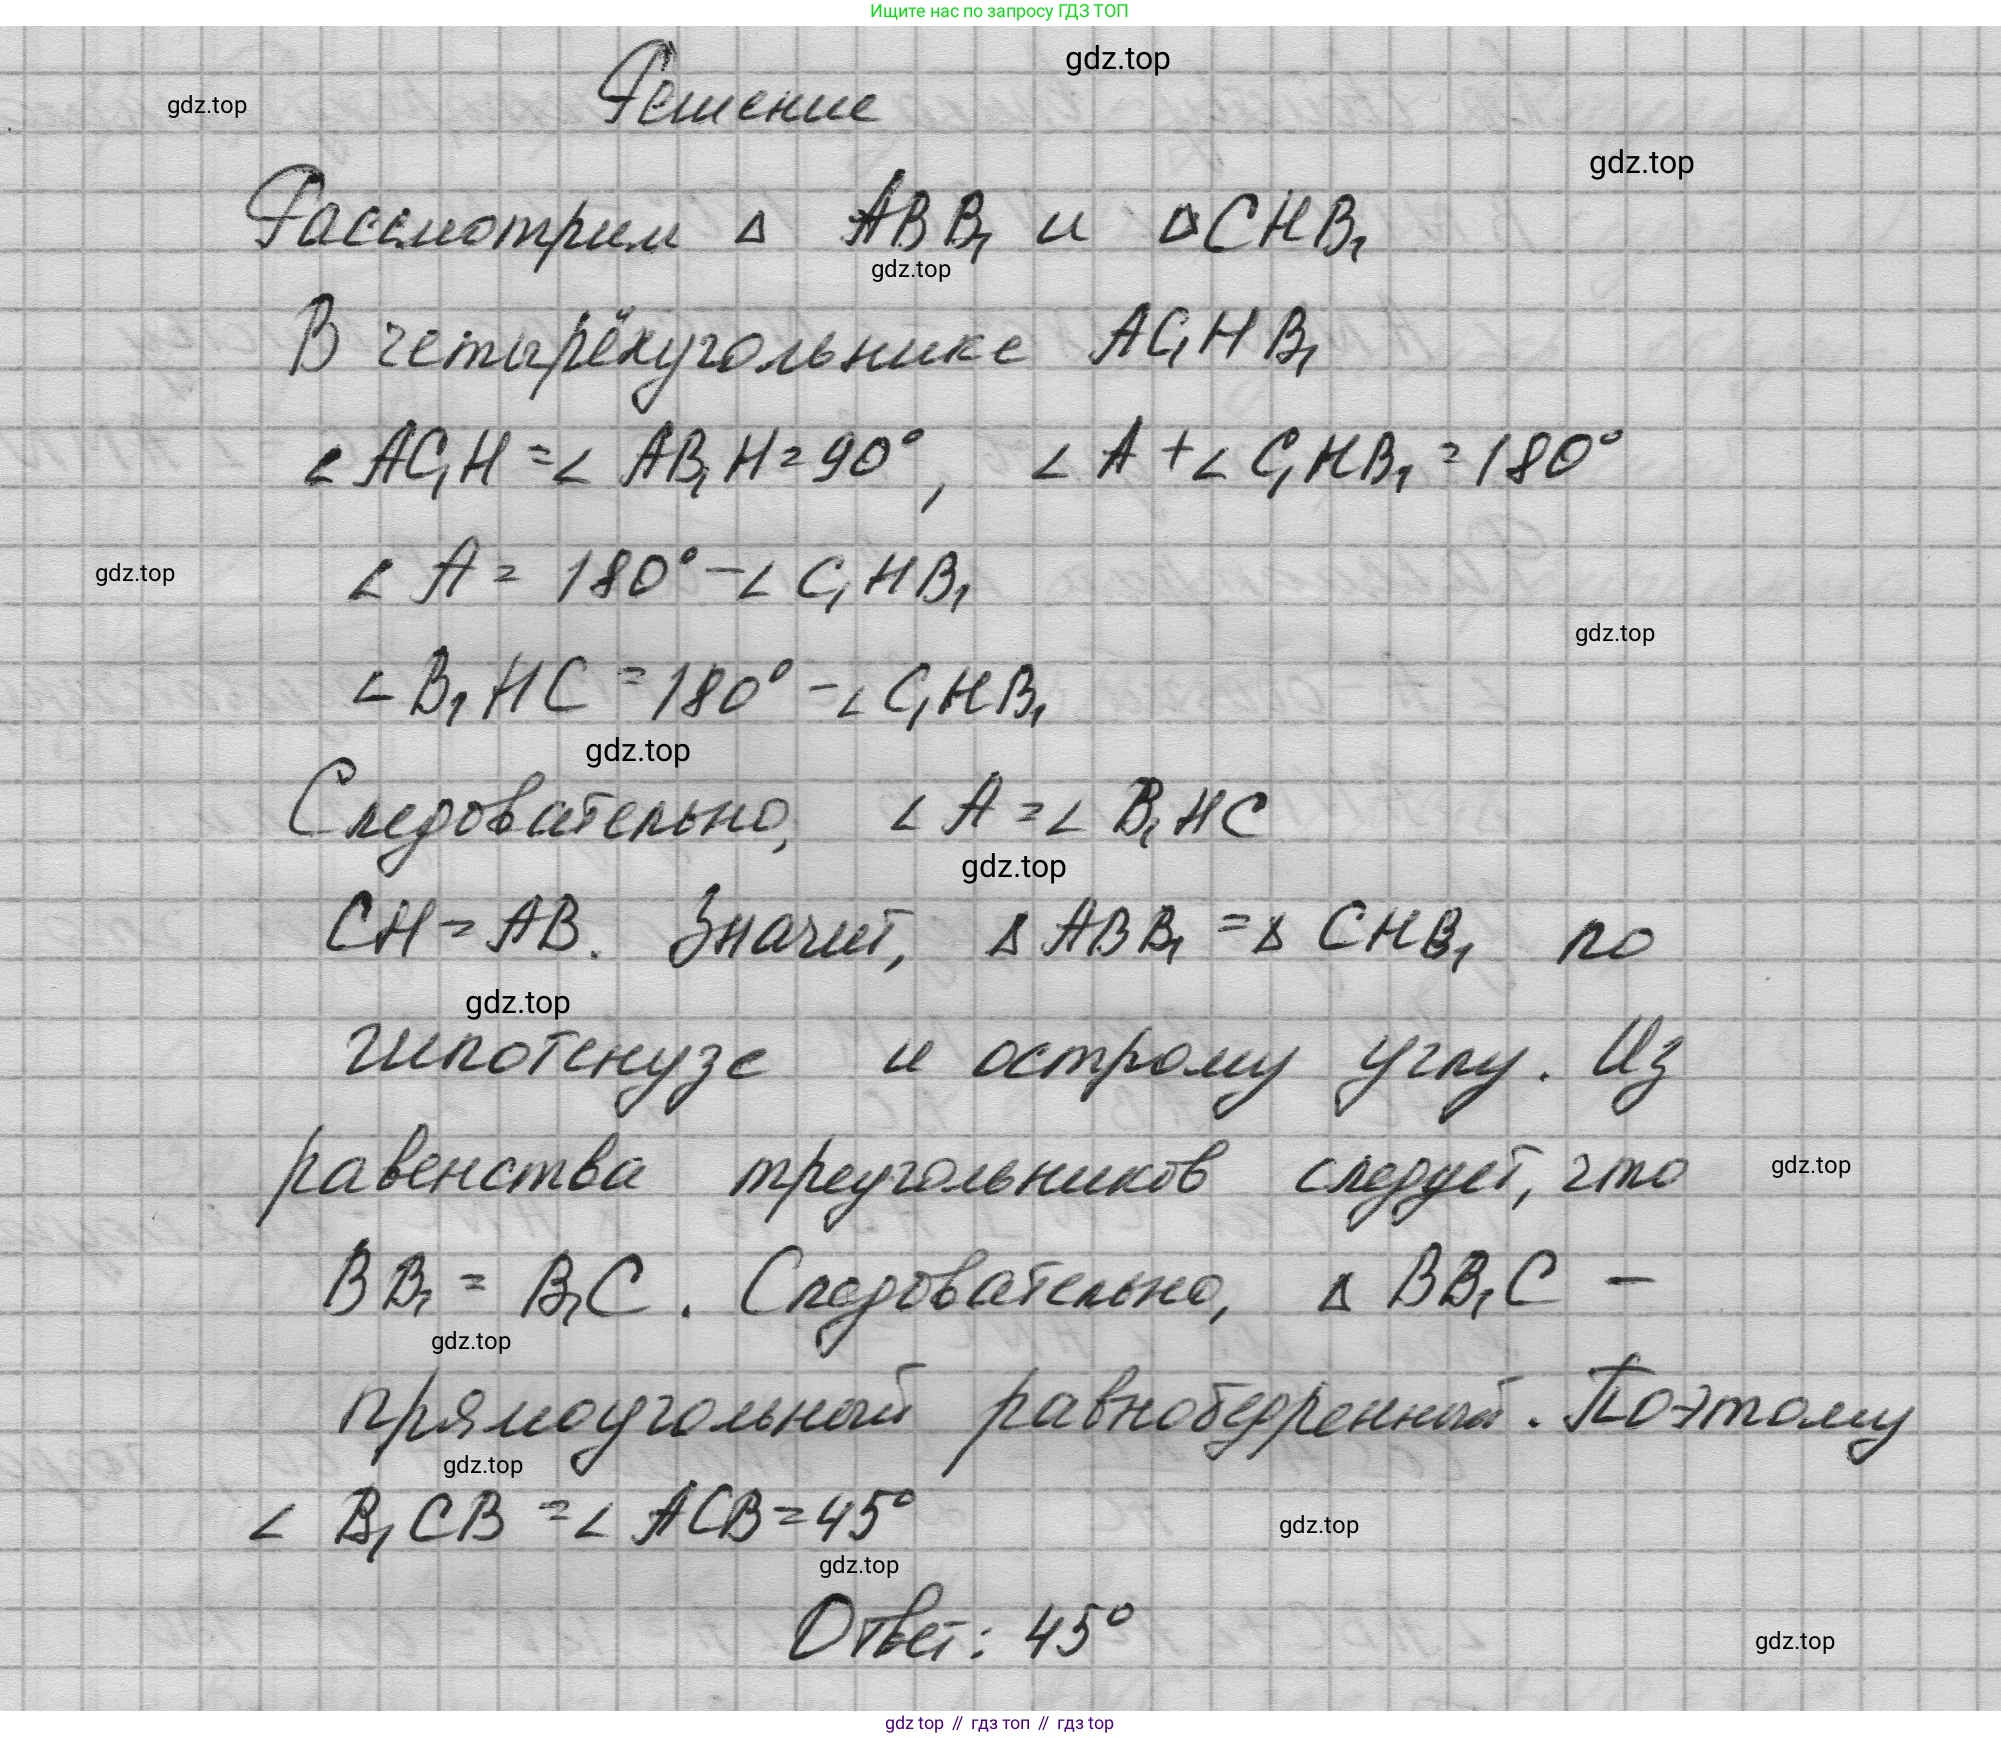 Ищите нас по запросу ГДЗ ТОП
gdz.top
Решение
gdz.top
gdz.top
Рассмотрим ∆ ABB₁ и ∆CHB₁
gdz.top
В четырёхугольнике AC₁HB₁
∠AC₁H = ∠AB₁H = 90°, ∠A + ∠C₁HB₁ = 180°
∠A = 180° - ∠C₁HB₁
gdz.top
gdz.top
∠B₁HC = 180° - ∠C₁HB₁
gdz.top
Следовательно, ∠A = ∠B₁HC
gdz.top
CH = AB. Значит, ∆ABB₁ = ∆CHB₁ по
gdz.top
гипотенузе и острому углу. Из
равенства треугольников следует, что
gdz.top
BB₁ = B₁C. Следовательно, ∆BB₁C –
gdz.top
прямоугольный равнобедренный. Поэтому
gdz.top
∠B₁CB = ∠ACB = 45°
gdz.top
gdz.top
Ответ: 45°
gdz.top
gdz top // гдз топ // гдз top